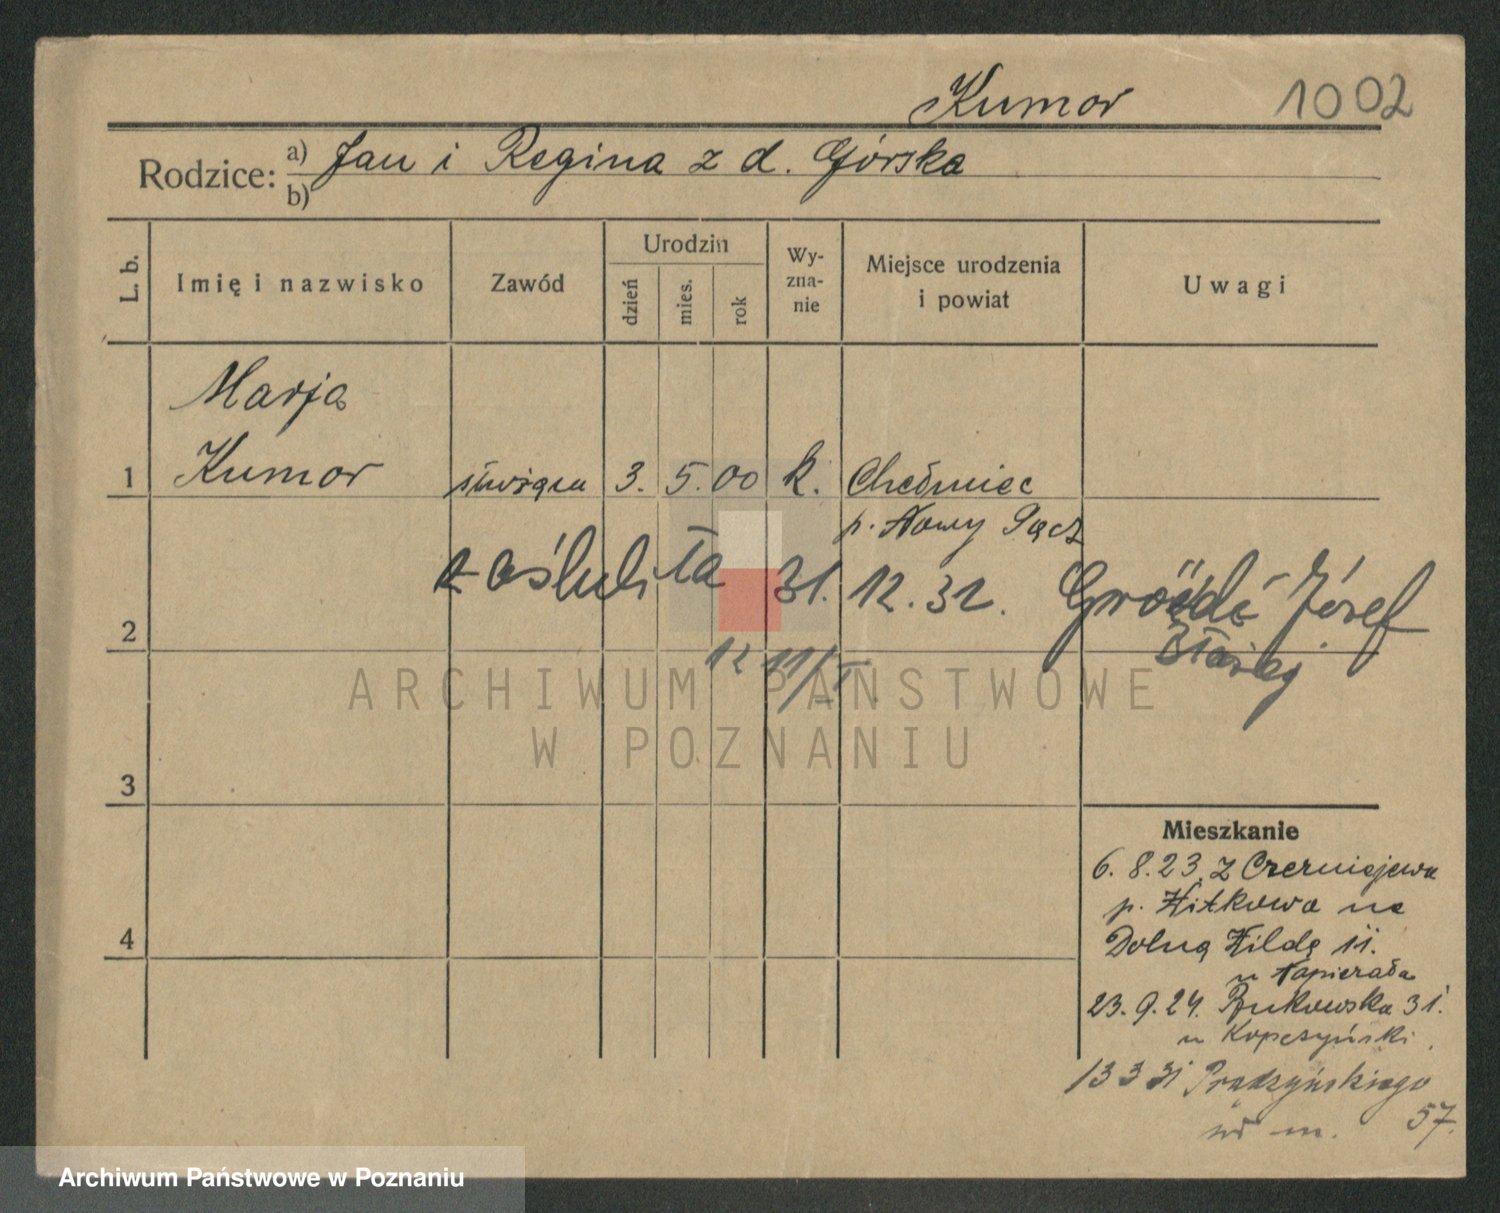 Kumor 1002
Rodzice: a) Jan i Regina z d. Górska
b)
L. b. Imię i nazwisko Zawód Urodzin dzień mies. rok Wy-zna-nie Miejsce urodzenia i powiat Uwagi
Marja
1 Kumor służąca 3. 5. 00 k. Chełmiec
p. Nowy Sącz
zaślubiła 31. 12. 32. Józef
2 Błażej
12 11/
ARCHIWUM PAŃSTWOWE
W POZNANIU
3
Mieszkanie
6. 8. 23. z Czerniejewa
p. Witkowo na
4 Dolną Wildę 11.
u Napierała
23. 9. 24. Bukowska 31.
u Kopczyński
13 3 31 Prądzyńskiego
57.
Archiwum Państwowe w Poznaniu